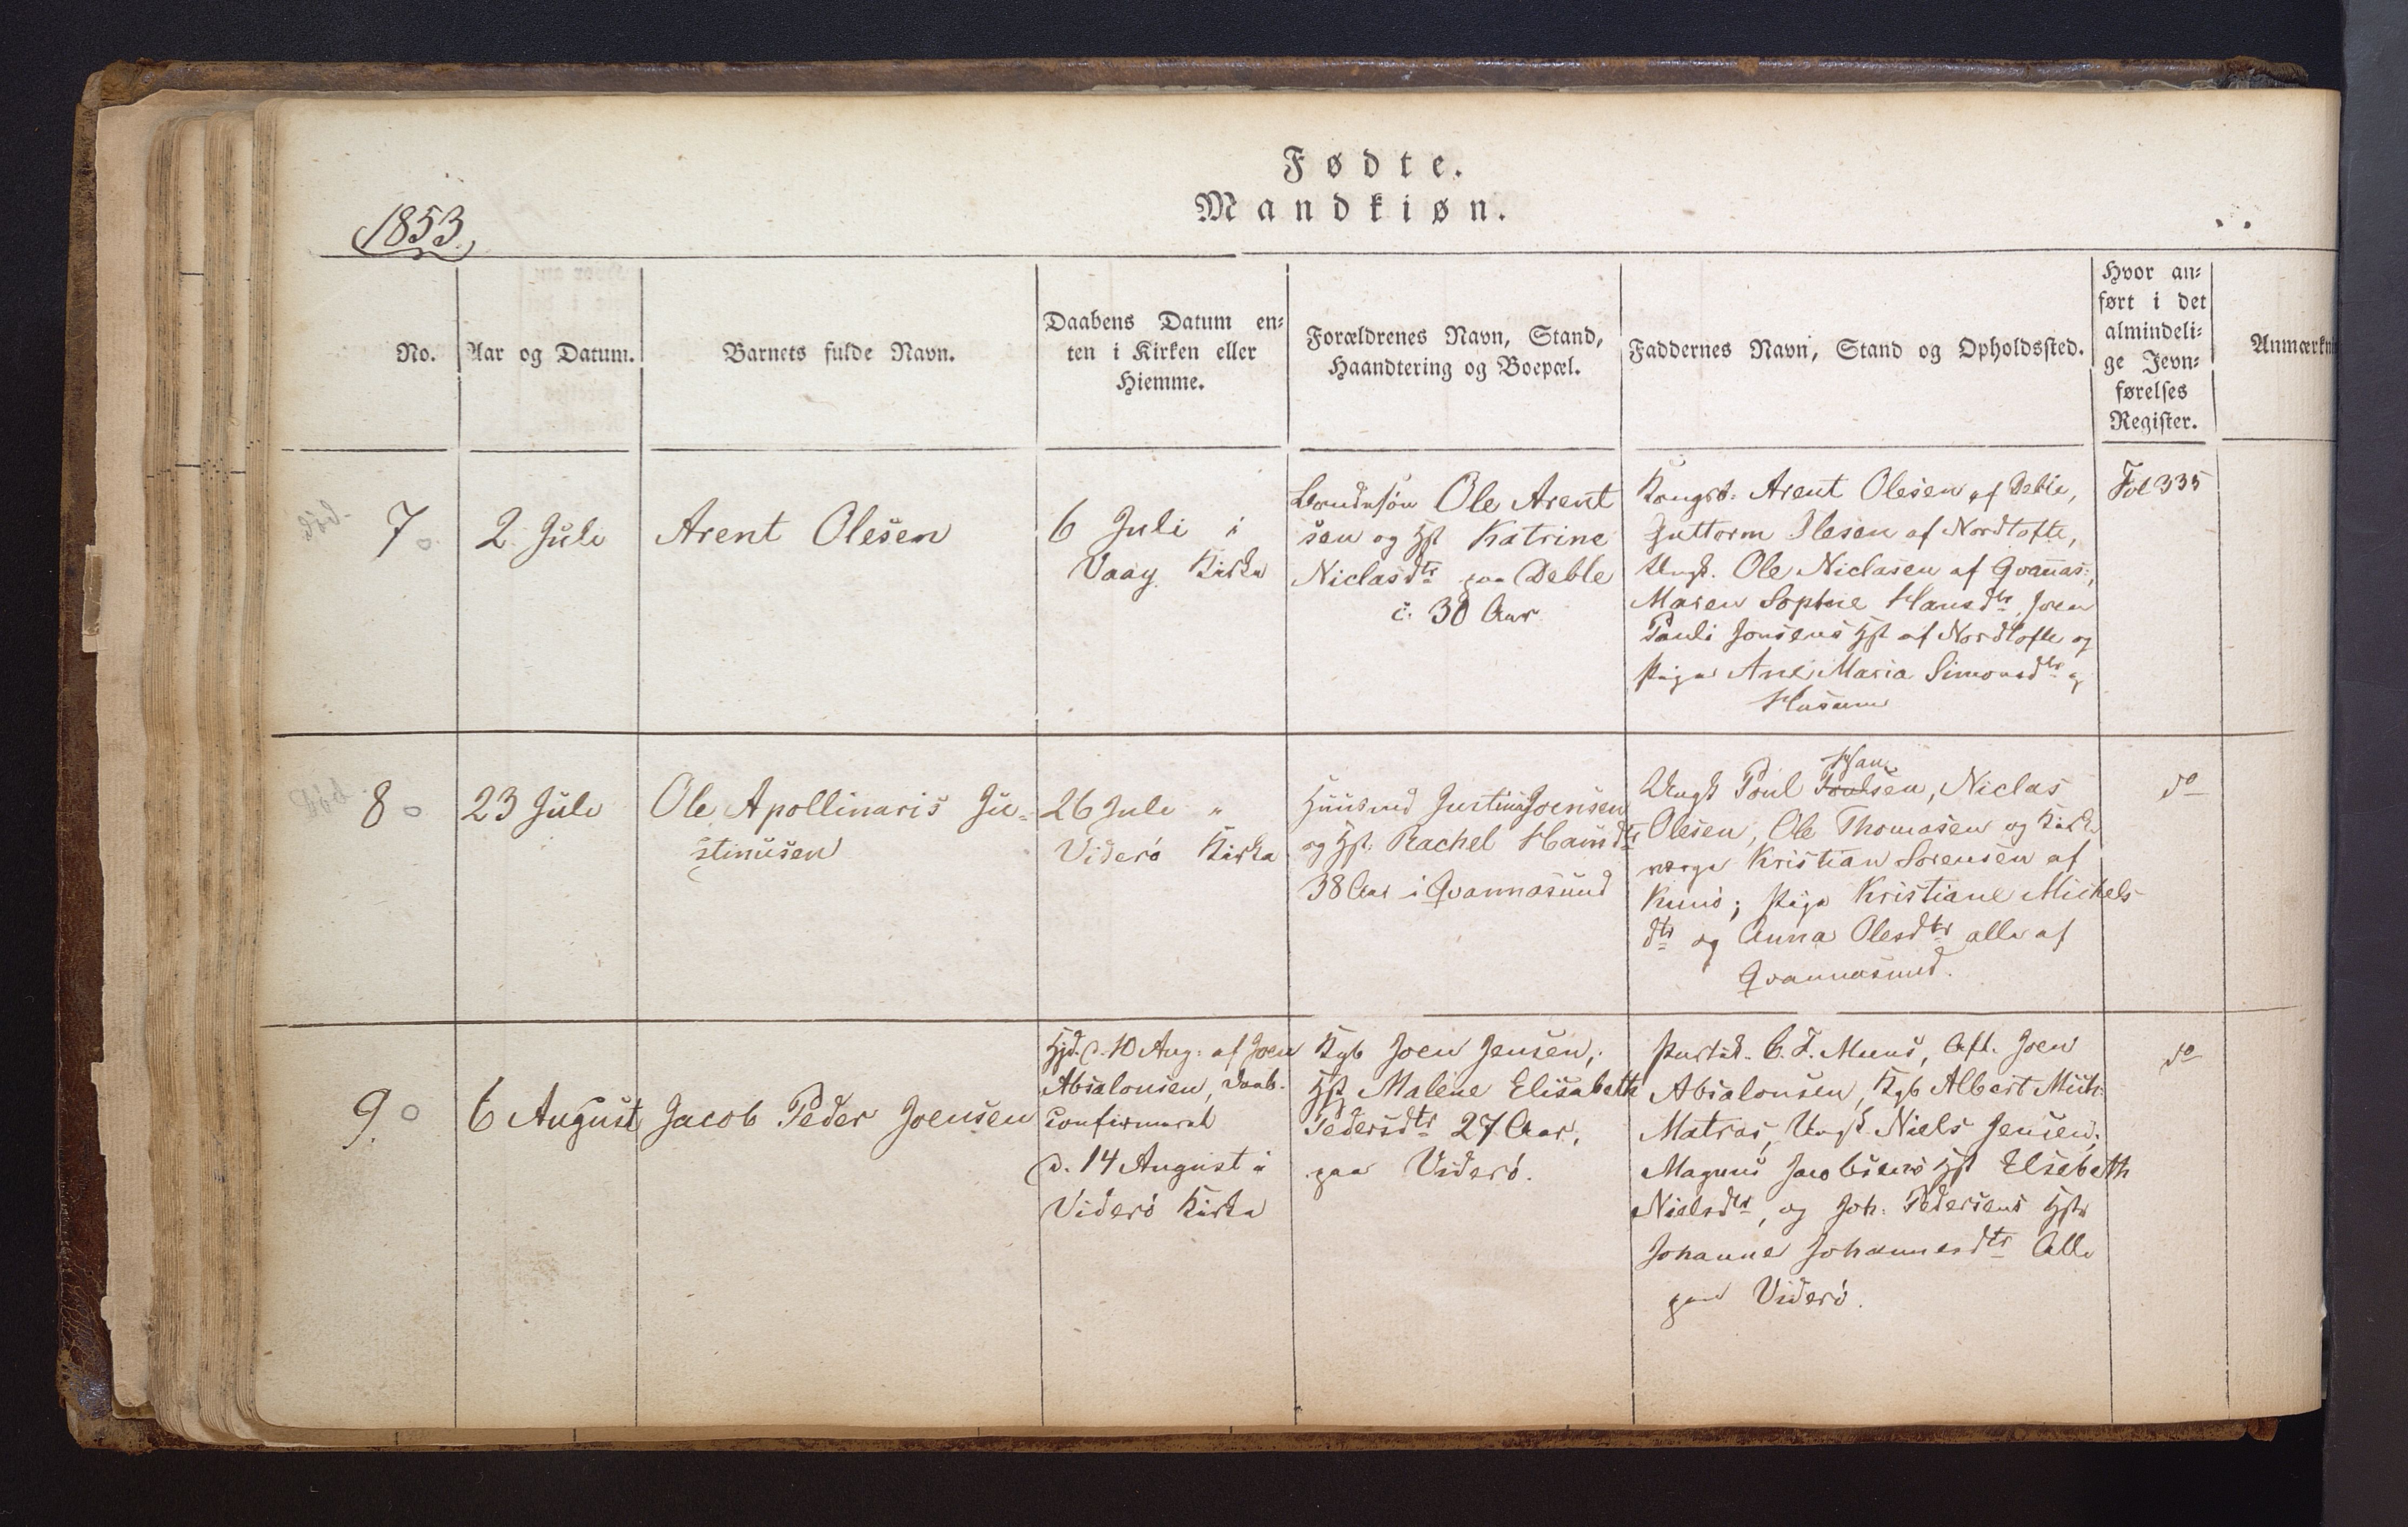 Fødte.
Mandkiøn.
1853.
No.
Aar og Datum.
Barnets fulde Navn.
Daabens Datum en-
ten i Kirken eller
Hiemme.
Forældrenes Navn, Stand,
Haandtering og Boepæl.
Faddernes Navn, Stand og Opholdssted.
Hvor an-
ført i det
almindeli-
ge Jevn-
førelses
Register.
Anmærkn
7
2 Juli
Arent Olesen
6 Juli i
Vaag Kirke
Bondesøn Ole Arent
sen og Hst Katrine
Niclasdtr paa Deble
30 Aar
Kongsb: Arent Olesen af Deble,
Guttorm Olesen af Nordtofte,
Ungk. Ole Niclasen af Qvannas:,
Maren Sophie Hansdtr, Joen
Pauli Jonsens Hst af Nordtofte og
Pige Ane Maria Simonsdtr af
Husum
Fol 335
8
23 Juli
Ole Apollinaris Ju-
stinusen
26 Juli "
Viderø Kirke
Huusmd Justinus Joensen
og Hst: Rachel Hansdtr
38 Aar i Qvannasund
Ungk Poul Poulsen, Niclas
Han
Olesen, Ole Thomasen og Kirke
værge Kristian Sørensen af
Kunø; Pige Kristiane Michels
dtr og Anna Olesdtr alle af
Qvannasund.
do
9.
6 August
Jacob Peder Joensen
Hjd. d. 10 Aug: af Joen
Absalonsen, Daab.
confirmeret
d. 14 August i
Viderø Kirke
Kgb Joen Jensen,
Hst Malene Elisabeth
Pedersdtr 27 Aar,
paa Viderø.
C. F. Muus, Aft. Joen
Absalonsen, Kgb Albert
Matras, Ungk Niels Jensen,
Magnus Jacobsens Hst Elsebeth
Nielsdtr, og Joh: Pedersens Hstr
Johanne Johannesdtr Alle
paa Viderø.
do